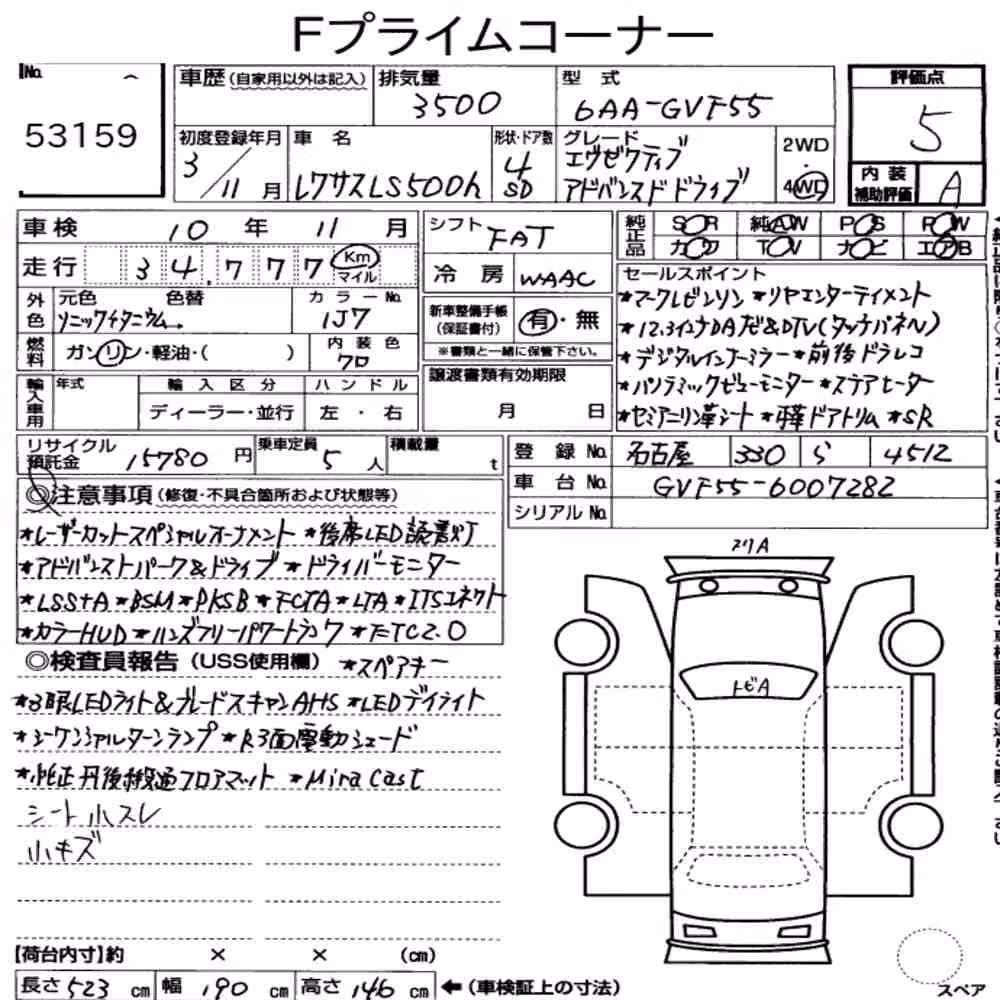 Fプライムコーナー
No.
53159
車歴(自家用以外は記入)
排気量
3500
型式
6AA-GVF55
評価点
5
初度登録年月
3/11月
車名
レクサスLS500h
形状・ドア数
4
SD
グレード
エグゼクティブ
アドバンスドドライブ
2WD
・
4WD
内装
補助評価
A
車検 10年 11月
シフト FAT
純正品
SR 純AW PS PW
カワ TV ナビ エアB
走行 34,777 Km
マイル
冷房 WAAC
セールスポイント
*マークレビンソン *リヤエンターテイメント
*12.3インチDAナビ&DTV(タッチパネル)
*デジタルインナーミラー *前後ドラレコ
*パノラミックビューモニター *ステアヒーター
*セミアニリン革シート *本革ドアトリム *SR
外色
元色 色替
ソニックチタニウム
カラーNo.
1J7
新車整備手帳
(保証書付)
有・無
※書類と一緒に保管下さい。
燃料
ガソリン・軽油・( )
内装色
クロ
輸入車用
年式
輸入区分
ディーラー・並行
ハンドル
左・右
譲渡書類有効期限
月 日
リサイクル
預託金 15780円
乗車定員
5人
積載量
t
登録No. 名古屋 330 ら 4512
車台No. GVF55-6007282
シリアルNo.
◎注意事項(修復・不具合箇所および状態等)
*レーザーカットスペシャルオーナメント *後席LED読書灯
*アドバンストパーク&ドライブ *ドライバーモニター
*LSS+A *BSM *PKSB *FCTA *LTA *ITSコネクト
*カラーHUD *ハンズフリーパワートランク *ETC2.0
◎検査員報告(USS使用欄) *スペアキー
*3眼LEDライト&ブレードスキャンAHS *LEDデイライト
*シーケンシャルターンランプ *R3面電動シェード
*純正フロアマット *Mira Cast
シート小スレ
小キズ
メリA
トビA
【荷台内寸】約 × × (cm)
長さ523cm 幅190cm 高さ146cm ←(車検証上の寸法)
スペア